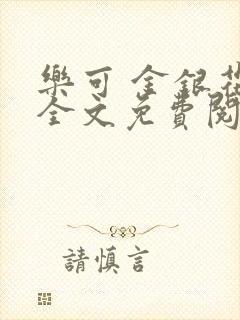 樂可 金銀花
全文免費閱
請慎言